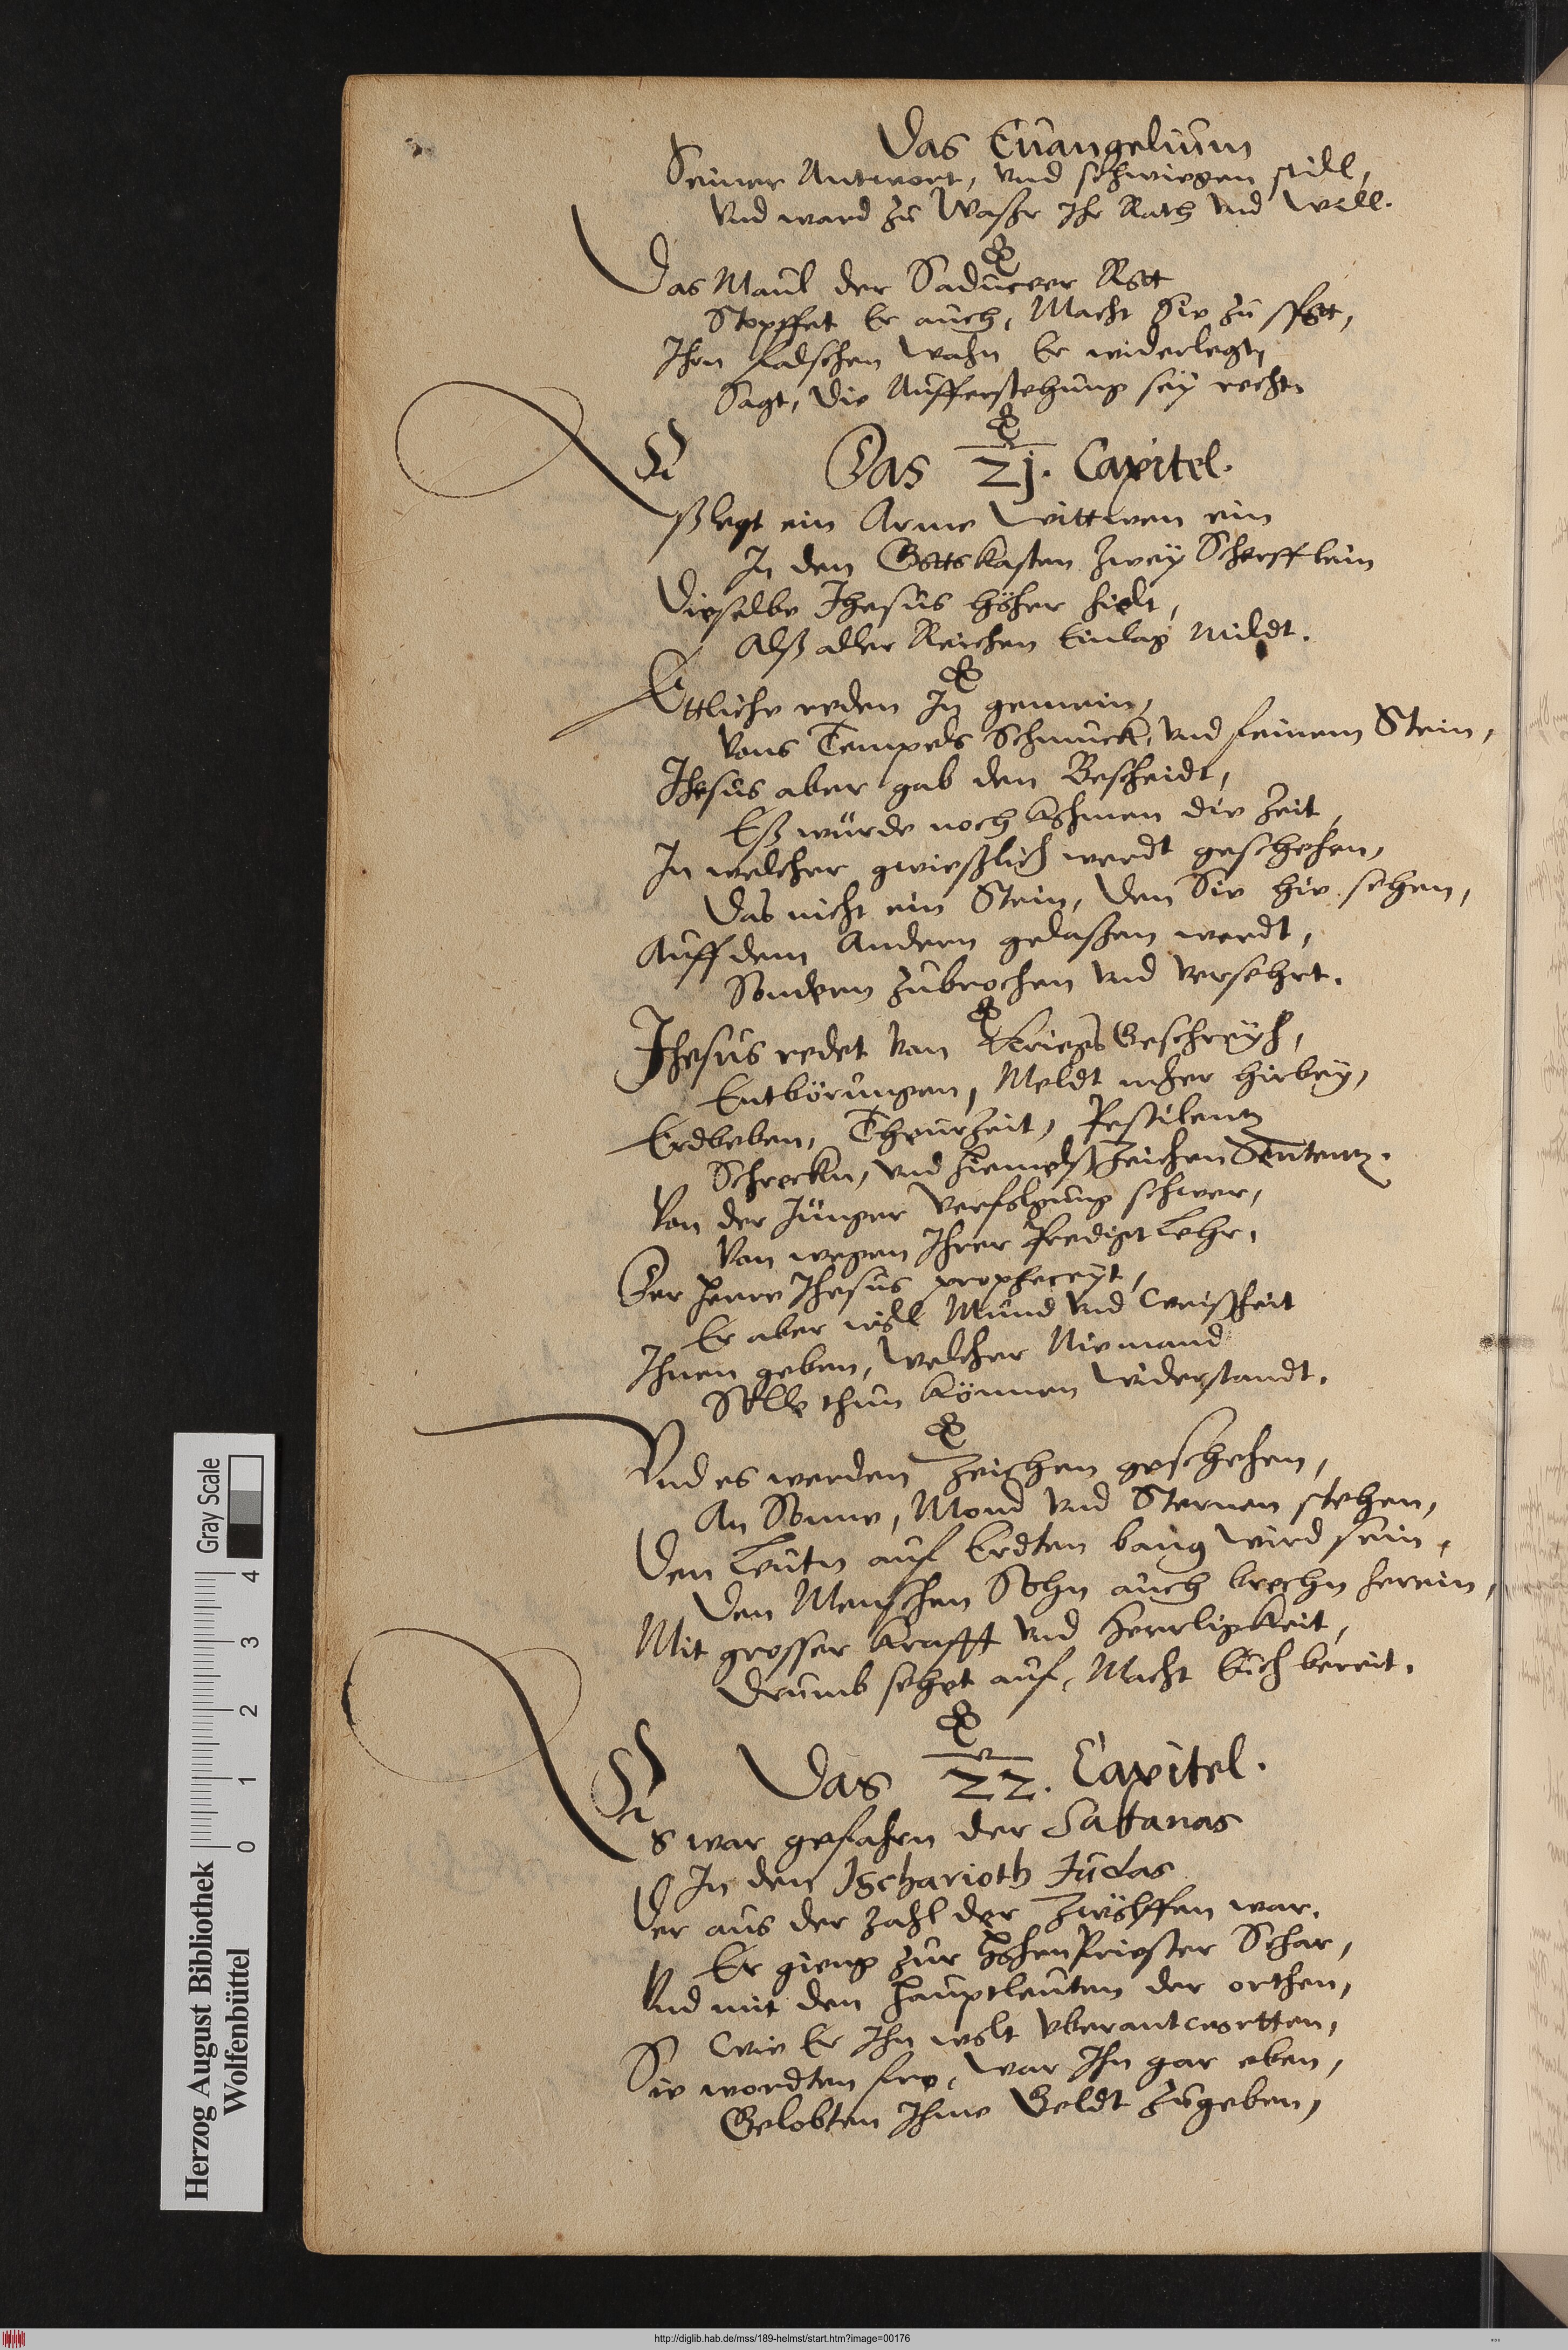 Das Euangelium
Seiner Antwort, vnd schwiegen still,
Vnd ward zu Waßr Ihr Rath vnd Will.
Das Maul der Saduceer Rott
Stopffet Er auch, Macht Sie zu spott,
Ihrn falschen wahn Er widerlegt,
Sagt, die Aufferstehung seÿ recht.
Das 2j. Capitel.
Eßlegt ein Arme Wittwen ein
In den Gottskasten zweÿ Scherfflein
Dieselbe Jhesus höher hielt,
Alß aller Reichen Einlag mildt.
Ettliche reden In gemein,
Vons Tempels Schmuck, vnd feinem Stein,
Jhesus aber gab den Bescheidt,
Eß würde noch kohmen die Zeit,
In welcher gwießlich werdt geschehen,
Das nicht ein Stein, den Sie hie sehen,
Auff dem Andern gelaßen werdt,
Sondern zubrochen vnd versehrt.
Jhesus redet von Kriegs Geschreÿh,
Entbörungen, Meldt mher hirbeÿ,
Erdbeben, Theurzeit, Pestilentz
Schreckn, vnd Hiemelßzeichen Sententz.
Von der Jünger Verfolgung schwer,
Von wegen Ihrer Predigt Lehr.
Der Herre Jhesus propheceÿt,
Er aber woll Mund vnd Weißheit
Ihnen geben, Welcher Niemand
Solle thun können widerstandt.
Vnd es werden Zeichen geschehen,
An Sonne, Mond vnd Sternen stehen,
Den Leutn auf Erdten bang wird sein,
Den Menschen Sohn auch brechn herein,
Mit grosser Krafft vnd Herrligkeit,
Drumb sehet auf, Macht Euch bereit.
Das 22. Capitel.
Es war gefahrn der Sattanas
In den Ischarioth Judas
Der aus der Zahl der Zwölffen war.
Er gieng zur HohenPriester Schar,
Vnd mit den Hauptleuten der orthen,
Wie Er Ihn wolt vberantwortten,
Sie wordten fro, War Ihn gar eben,
Gelobten Ihme Geldt zugeben,
Herzog August Bibliothek
Wolfenbüttel
0 1 2 3 4
Gray Scale
http://diglib.hab.de/mss/189-helmst/start.htm?image=00176